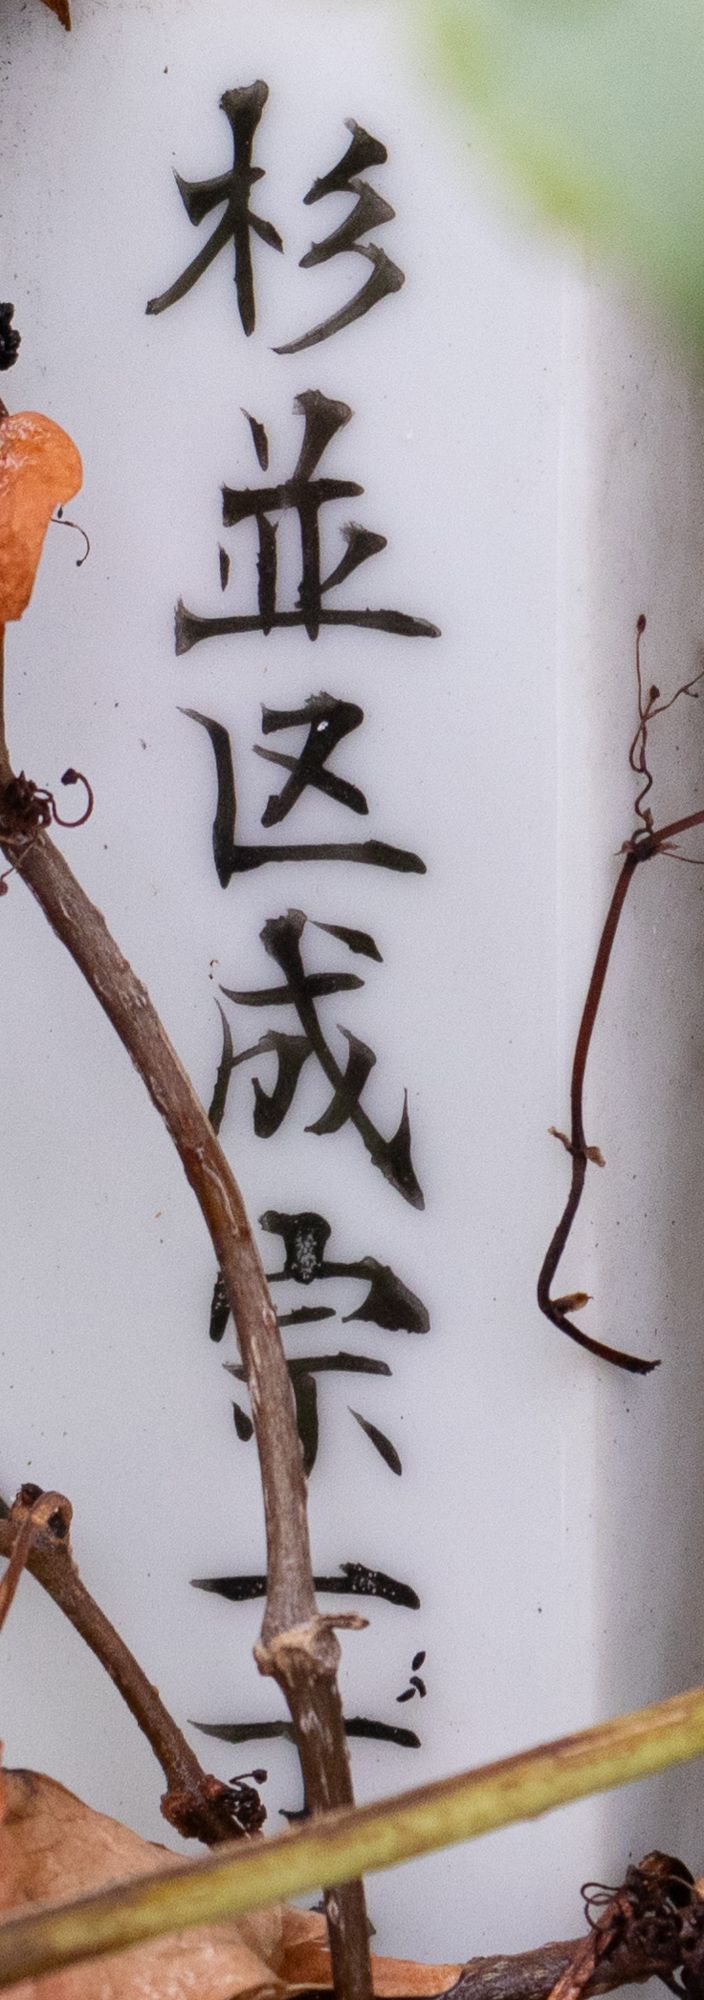 杉並区成宗一丁